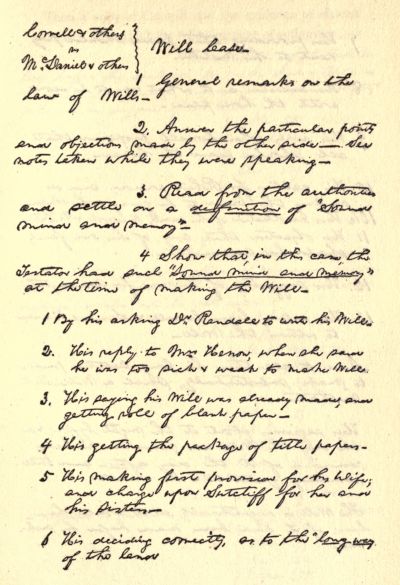 Correll & others
vs
McDaniel & others } Will case
1 General remarks on the
law of Wills—
2. Answer the particular points
and objections made by the other side— See
notes taken while they were speaking—
3. Read from the authorities
and settle on a definition of "Sound
mind and memory"
4 Show that, in this case, the
Testator had such "Sound mind and memory"
at the time of making the Will—
1 By his asking Dr. Randall to write his Will—
2. His reply to Mrs. when she said
he was too sick & weak to make Will.
3. His saying his Will was already made, and
getting roll of blank paper—
4 His getting the package of title papers—
5 His making first provision for his wife;
and charge upon Sutcliff for her and
his sisters—
6 His deciding correctly, as to the "long way
of the land